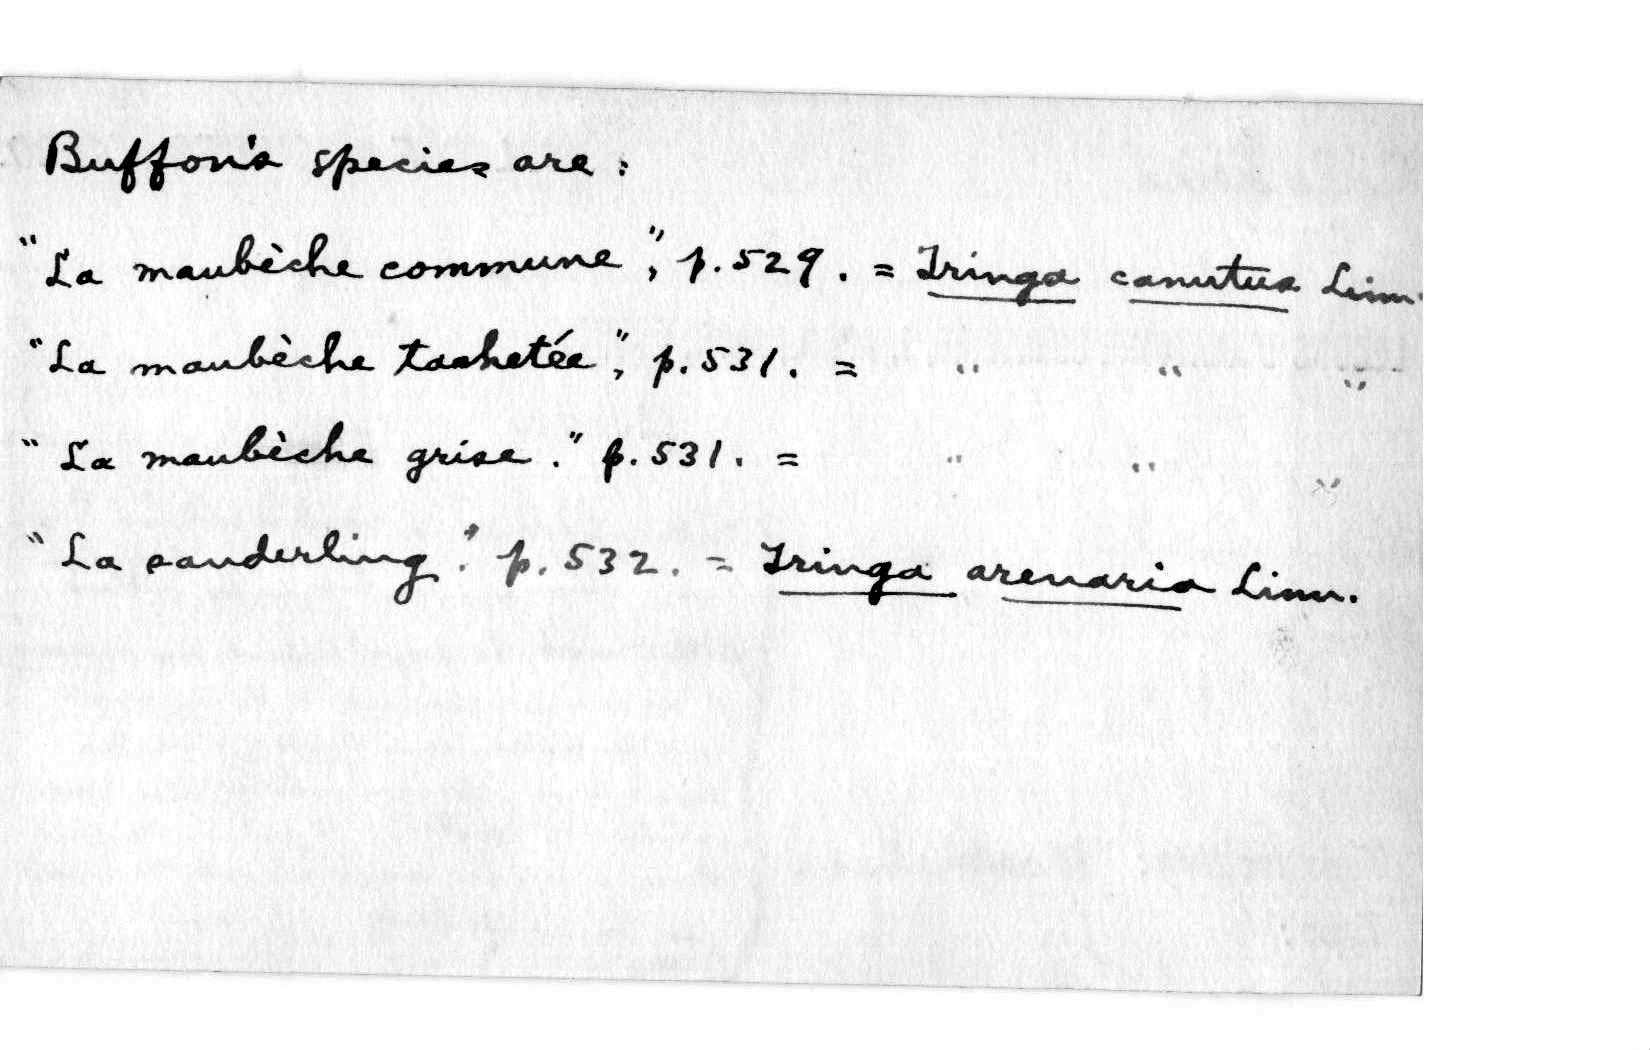 Buffon's species are:
"La maubèche commune", p. 529. = Tringa canutus Linn.
"La maubèche tachetée", p. 531. = " " "
"La maubèche grise." p. 531. = " " "
"La sanderling." p. 532. = Tringa arenaria Linn.